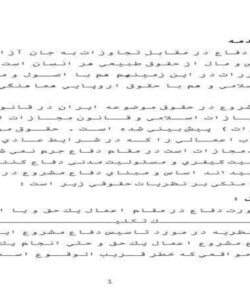 دمه
دفاع در مقابل تجاوزات به جان آزا
س و مال از حقوق طبیعی هر انسان است
ررات در این زمینهم هم با اصول و م
سلامی و هم با حقوق اروپایی هماهنگی
روع در حقوق موضوعه ایران در قانو
ازات اسلامی و قانون مجازات ا
ات ) پیش بینی شده است . حقوق مو
ب اعمالی را که در شرایط عادی
مجازات است در مقام دفاع جرم نمی ش
یت کیفری و مسئولیت مدنی دفاع کنند
ید اند اساس و مبنای دفاع مشروع د
متکی بر نظریات حقوقی زیر است :
ت :
ورت دفاع در مقام اعمال یك حق و یا ا
ك تکلیف
نظریه در مورد تاسیس دفاع مشروع ای
ع مشروع اعمال یك حق و حتی انجام یك
مواقعی که خطر قریب الوقوع اس
1